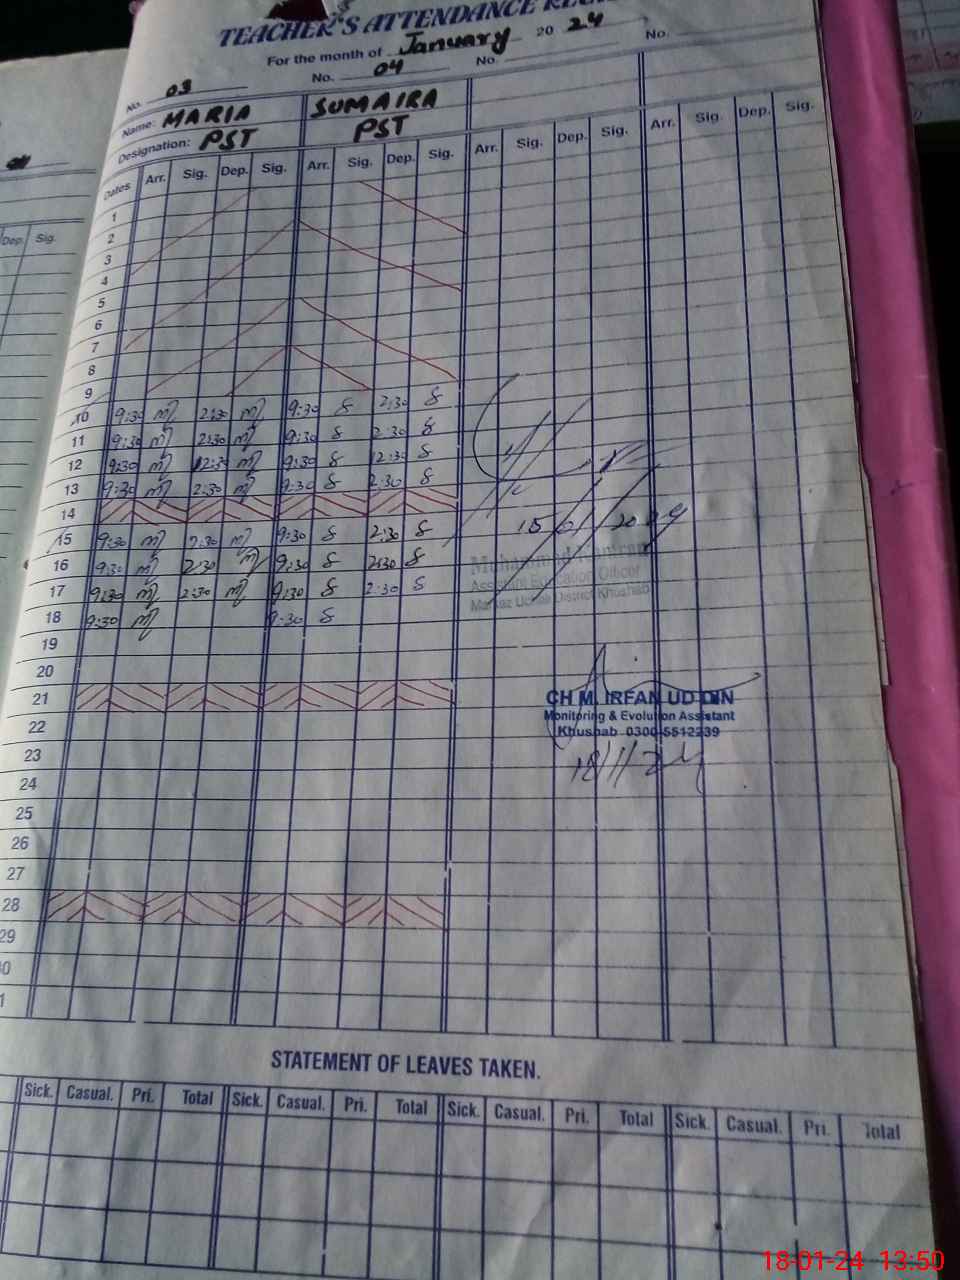 TEACHER'S ATTENDANCE
For the month of January 20 24
No. 03 No. 04 No. No.
Name: MARIA SUMAIRA
Designation: PST PST
Dates Arr. Sig. Dep. Sig. Arr. Sig. Dep. Sig. Arr. Sig. Dep. Sig. Arr. Sig. Dep. Sig.
Dep. Sig.
1
2
3
4
5
6
7
8
9
10 9:30 m 2:30 m 9:30 S 2:30 S
11 9:30 m 2:30 m 9:30 S 2:30 S
12 9:30 m 12:30 m 9:30 S 12:30 S
13 9:30 m 2:30 m 9:30 S 2:30 S
14
15 9:30 m 2:30 m 9:30 S 2:30 S
16 9:30 m 2:30 m 9:30 S 2:30 S
17 9:30 m 2:30 m 9:30 S 2:30 S
18 9:30 m 9:30 S
19
20
21
22
23
24
25
26
27
28
29
0
1
15/01/2024
Muhammad Kamran
Assistant Education Officer
Markaz Uchali District Khushab
CH M. IRFAN UD DIN
Monitoring & Evolution Assistant
Khushab 0300-5512239
18/1/24
STATEMENT OF LEAVES TAKEN.
Sick. Casual. Pri. Total Sick. Casual. Pri. Total Sick. Casual. Pri. Total Sick. Casual. Pri. Total
18-01-24 13:50